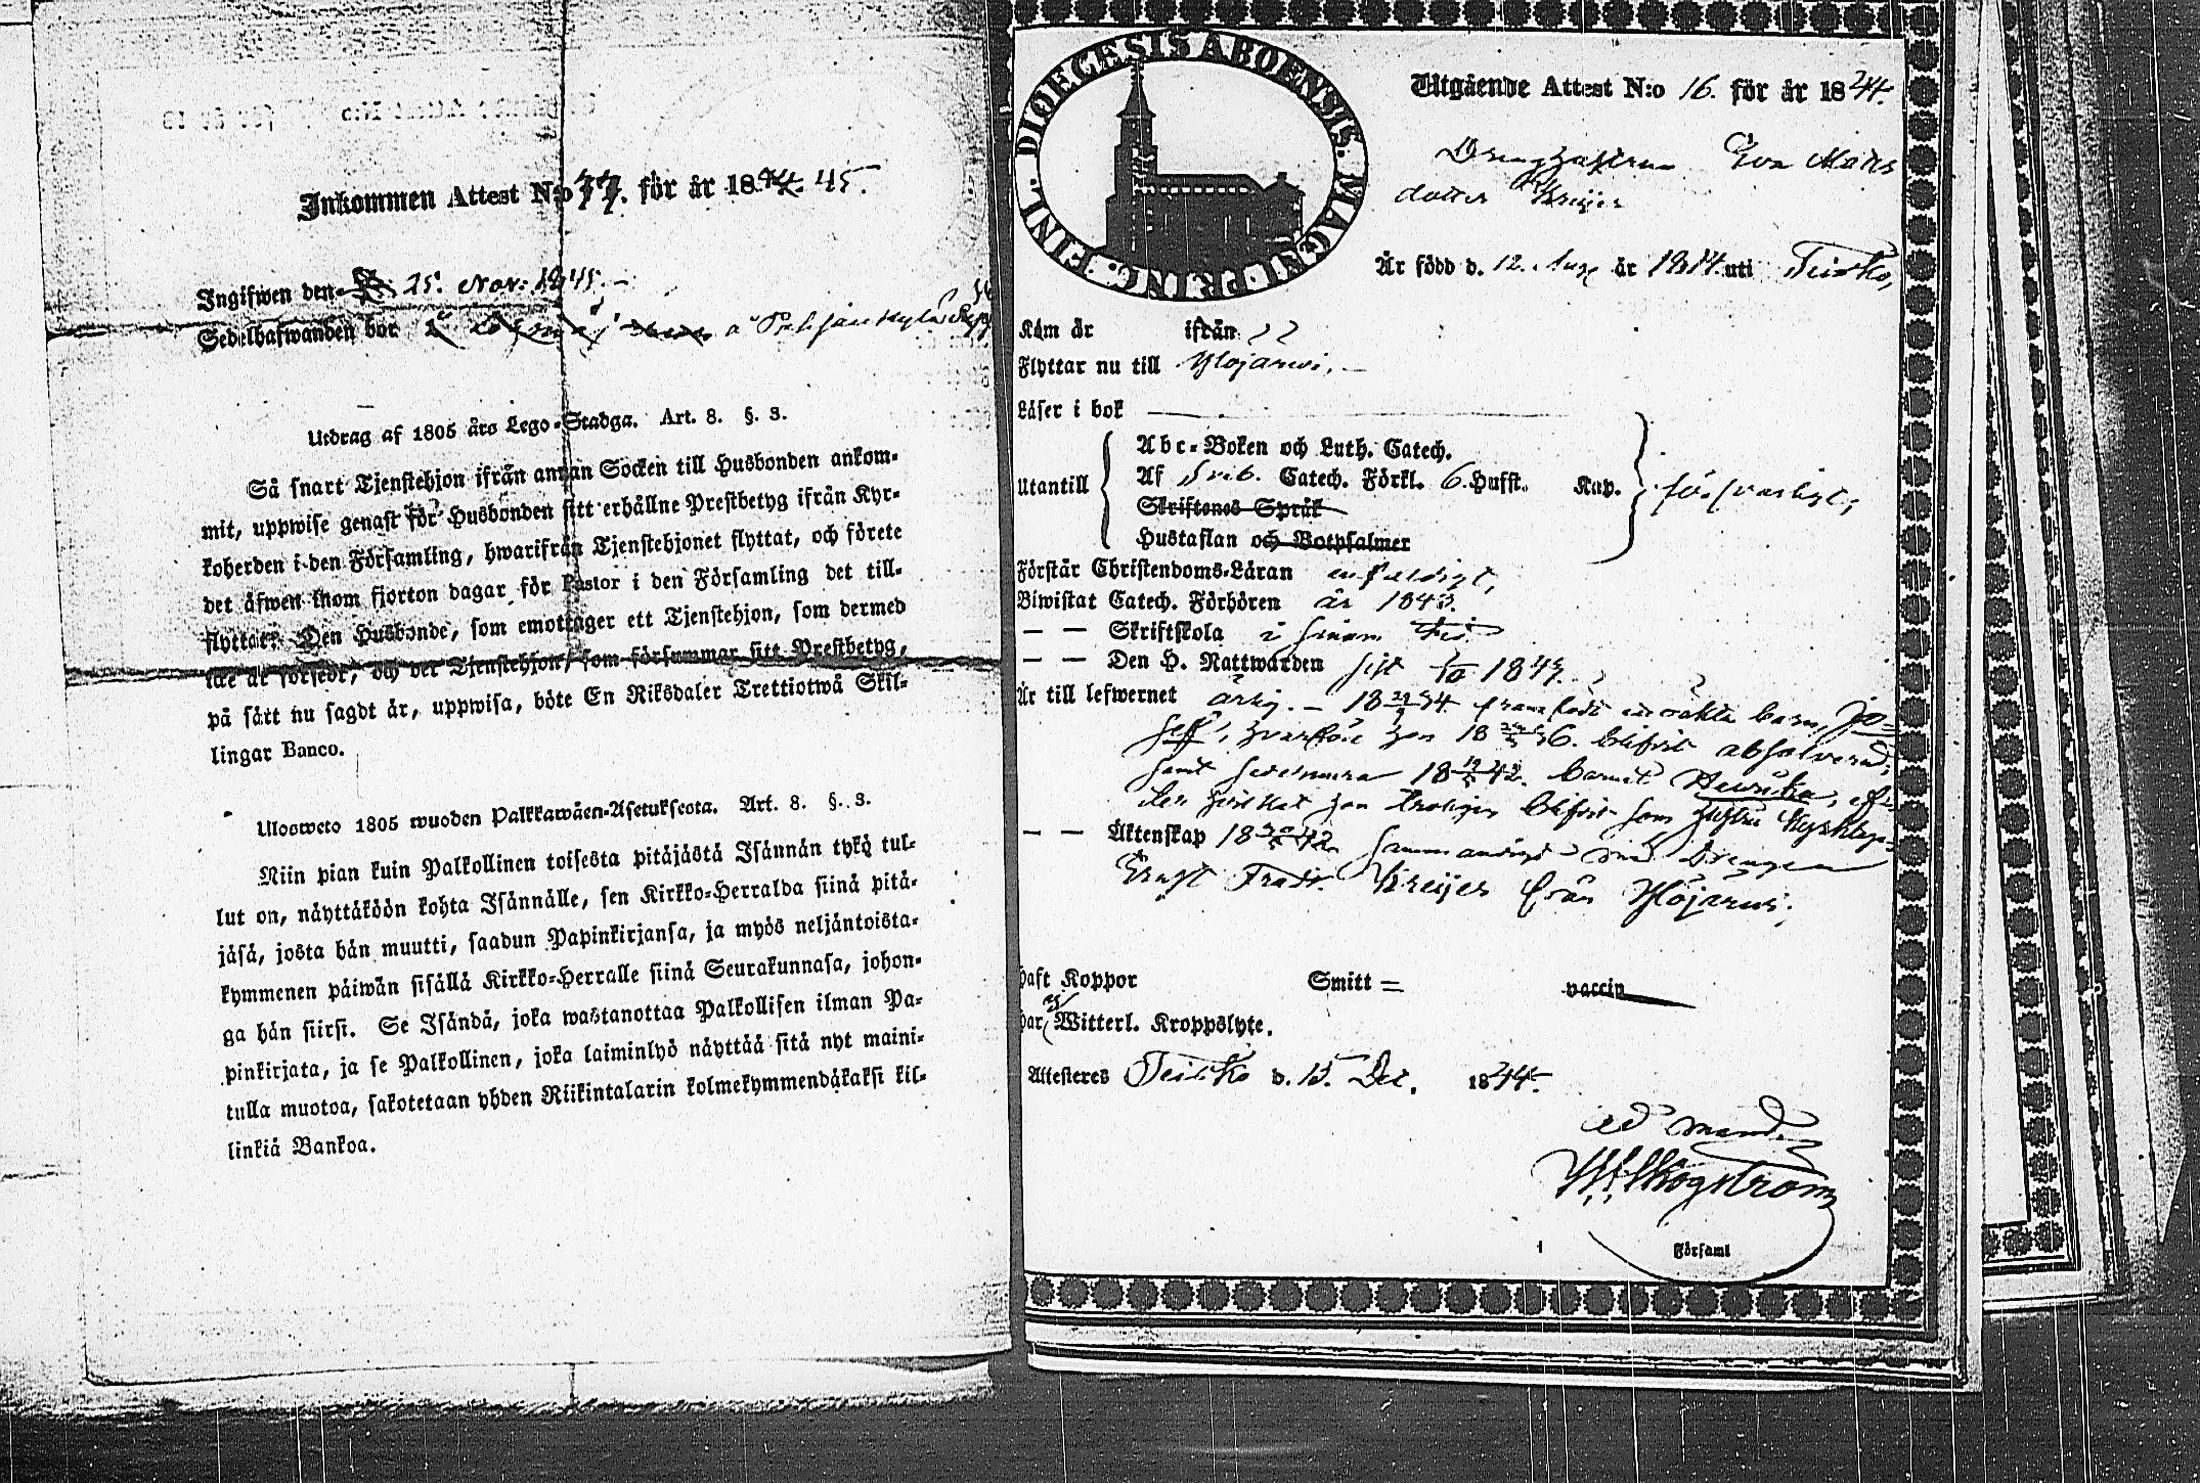 Inkommen Attest N:o 77. för år 1844. 45.
Ingifwen den 25. Nov: 1845. –
Sedelhafwanden bor
Utdrag af 1805 års Lego-Stadga. Art. 8. §. 3.
Så snart Tjenstehjon ifrån annan Socken till Husbonden ankom-
mit, uppwise genast för Husbonden sitt erhållne Prestbetyg ifrån Kyr-
koherden i den Församling, hwarifrån Tjenstehjonet flyttat, och förete
det äfwen inom fjorton dagar för Pastor i den Församling det till-
flyttat. Den Husbonde, som emottager ett Tjenstehjon, som dermed
icke är försedt, och det Tjenstehjon, som försummar sitt Prestbetyg,
på sätt nu sagdt är, uppwisa, böte En Riksdaler Trettiotwå Skil-
lingar Banco.
Ulosweto 1805 wuoden Palkkawäen-Asetuksesta. Art. 8. §. 3.
Niin pian kuin Palkollinen toisesta pitäjästä Isännän tykö tul-
lut on, näyttäköön kohta Isännälle, sen Kirkko-Herralda siinä pitä-
jäsä, josta hän muutti, saadun Papinkirjansa, ja myös neljäntoista-
kymmenen päiwän sisällä Kirkko-Herralle siinä Seurakunnasa, johon-
ga hän siirsi. Se Isändä, joka wastanottaa Palkollisen ilman Pa-
pinkirjata, ja se Palkollinen, joka laiminlyö näyttää sitä nyt maini-
tulla muotoa, sakotetaan yhden Riikintalarin kolmekymmendäkaksi kil-
linkiä Bankoa.
DIOECESIS ABOENSIS. MAGNI PRINC. FINL.
Utgående Attest N:o 16. för år 1844.
Drenghustrun Eva Mats
dotter Kreijer
Är född d. 12. Aug är 1814. uti Teisko,
Kom år ifrån
Flyttar nu till Ylöjärwi. –
Läser i bok
Abc-Boken och Luth. Catech.
Utantill Af Sveb. Catech. Förkl. 6. Hufst. Kap. försvarligt,
Skriftenes Språk
Hustaflan och Botpsalmer
Förstår Christendoms-Läran enfaldigt,
Biwistat Catech. Förhören år 1843.
— — Skriftskola i sinom tid
— — Den H. Nattwarden sist 1843.
Är till lefwernet ärlig. – 18 34 framfödt oäkta barn, Jo-
sef, hvarföre hon 18 36. blifvit absolverad,
samt sedermera 18 42. barnet Henrika, ef-
ter hvilket hon troligen blifvit som hustru kyrktagen
— — Äktenskap 18 42 sammanvigd med drengen
Ernst Fredr. Kreijer från Ylöjärwi.
Haft Koppor Smitt = vaccin
Har ej Witterl. Kroppslyte.
Attesteras Teisko d. 15. Dec. 1844.
ad mand.
Skogström
Församl